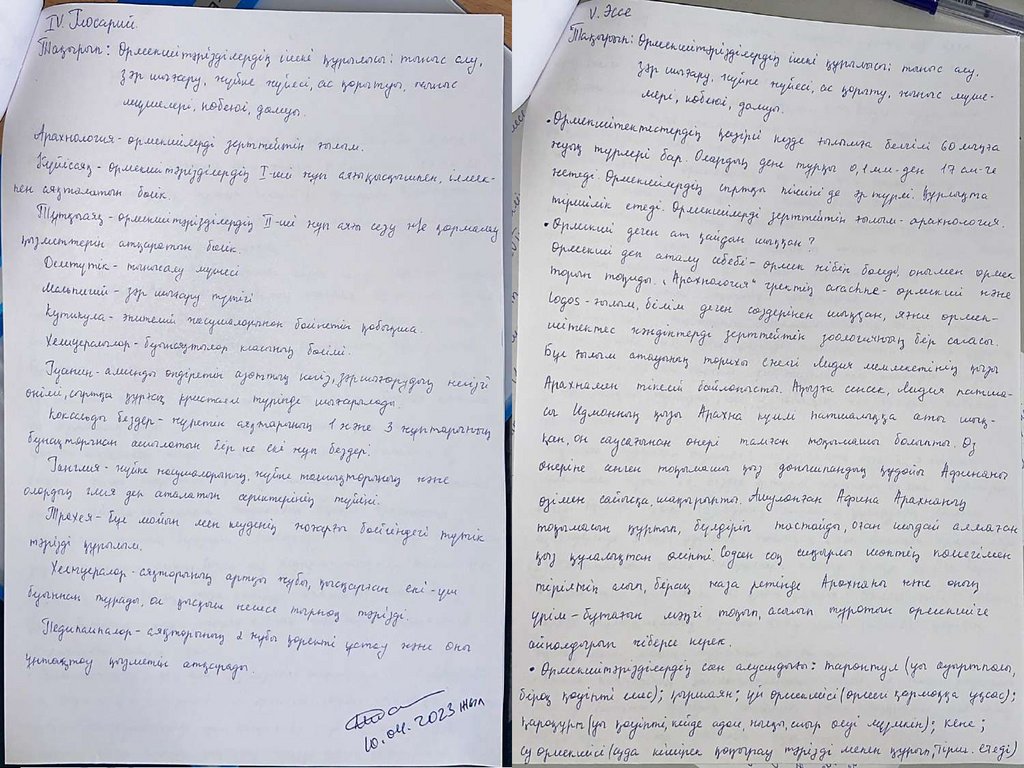 IV. Глосарий.
Тақырып: Өрмекшітәрізділердің ішкі құрылысы: тыныс алу,
зәр шығару, жүйке жүйесі, ас қорытуы, жыныс
мүшелері, көбеюі, дамуы.
Арахнология - өрмекшілерді зерттейтін ғылым.
Күйісаяқ - өрмекшітәрізділердің I-ші жұп аяғы қысқышпен, ілмек-
пен аяқталатын бөлік.
Тұтқыаяқ - өрмекшітәрізділердің II-ші жұп аяғы сезу және қармалау
қызметтерін атқаратын бөлік.
Демтүтік - тынысалу мүшесі
Мальпигий - зәр шығару түтігі
Кутикула - эпителий жасушаларынан бөлінетін қабықша.
Хелицералылар - буынаяқтылар класының бөлімі.
Гуанин - аминды өндіретін азоттың негіз, зәр шығарудың негізгі
өнімі, сыртқа құрғақ кристалл түрінде шығарылады.
Коксальды бездер - жүретін аяқтарының 1 және 3 жұптарының
бунақтарынан ашылатын бір не екі жұп бездері.
Ганглия - жүйке жасушаларының, жүйке талшықтарының және
олардың глия деп аталатын серіктерінің түйіні.
Трахея - бұл мойын мен кеуденің жоғарғы бөлігіндегі түтік
тәрізді құрылым.
Хелицералар - аяқтарының артқы жұбы, қысқарған екі-үш
буыннан тұрады, ол қысқыш немесе тырнақ тәрізді.
Педипальпалар - аяқтарының 2 жұбы қоректі ұстау және оны
ұнтақтау қызметін атқарады.
10.04.2023 жыл
V. Эссе
Тақырып: Өрмекшітәрізділердің ішкі құрылысы: тыныс алу,
зәр шығару, жүйке жүйесі, ас қорыту, жыныс мүше-
лері, көбеюі, дамуы.
• Өрмекшітектестердің қазіргі кезде ғылымға белгілі 60 мыңға
жуық түрлері бар. Олардың дене тұрқы 0,1 мм-ден 17 см-ге
жетеді. Өрмекшілердің сыртқы пішіні де әр түрлі. Құрлықта
тіршілік етеді. Өрмекшілерді зерттейтін ғылым - арахнология.
• Өрмекші деген ат қайдан шыққан?
Өрмекші деп аталу себебі - өрмек жібін бөледі, онымен өрмек
торын тоқиды. „Арахнология" гректің arachne - өрмекші және
logos - ғылым, білім деген сөздерінен шыққан, яғни өрмек-
шітектес жәндіктерді зерттейтін зоологияның бір саласы.
Бұл ғылым атауының тарихы ежелгі Лидия мемлекетінің қызы
Арахнамен тікелей байланысты. Аңызға сенсек, Лидия патша-
сы Идмонның қызы Арахна күллі патшалыққа аты шық-
қан, он саусағынан өнері тамған тоқымашы болыпты. Өз
өнеріне сенген тоқымашы қыз даныштандық құдайы Афинаны
өзімен сайысқа шақырыпты. Ашуланған Афина Арахнаның
тоқымасын құртып, бүлдіріп тастайды, оған шыдай алмаған
қыз құсалықтан өліпті. Содан соң сиқырлы шөптің көмегімен
тірілтіп алып, бірақ жаза ретінде Арахнаны және оның
үрім-бұтағын мәңгі тоқып, асылып тұратын өрмекшіге
айналдырып жіберсе керек.
• Өрмекшітәрізділердің сан алуандығы: тарантул (уы ауыртпалы,
бірақ қауіпті емес); қыршаян; үй өрмекшісі (өрмегі қармаққа ұқсас);
қарақұрт (уы қауіпті, кейде адам, жылқы, сиыр өлуі мүмкін); кене;
су өрмекшісі (суда кішірек қоңырау тәрізді мекен құрып, тірш. етеді)